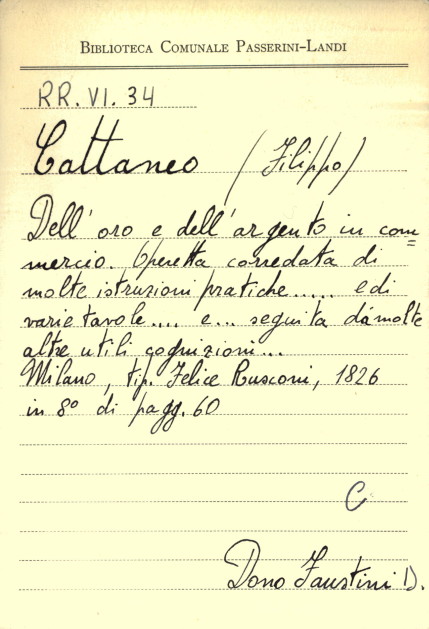 BIBLIOTECA COMUNALE PASSERINI-LANDI
RR. VI. 34
Cattaneo (Filippo)
Dell'oro e dell'argento in com=
mercio. Operetta corredata di
molte istruzioni pratiche..... e di
varie tavole.... e... seguita da molte
altre utili cognizioni...
Milano, tip. Felice Rusconi, 1826
in 8° di pagg. 60
C
Dono Faustini D.